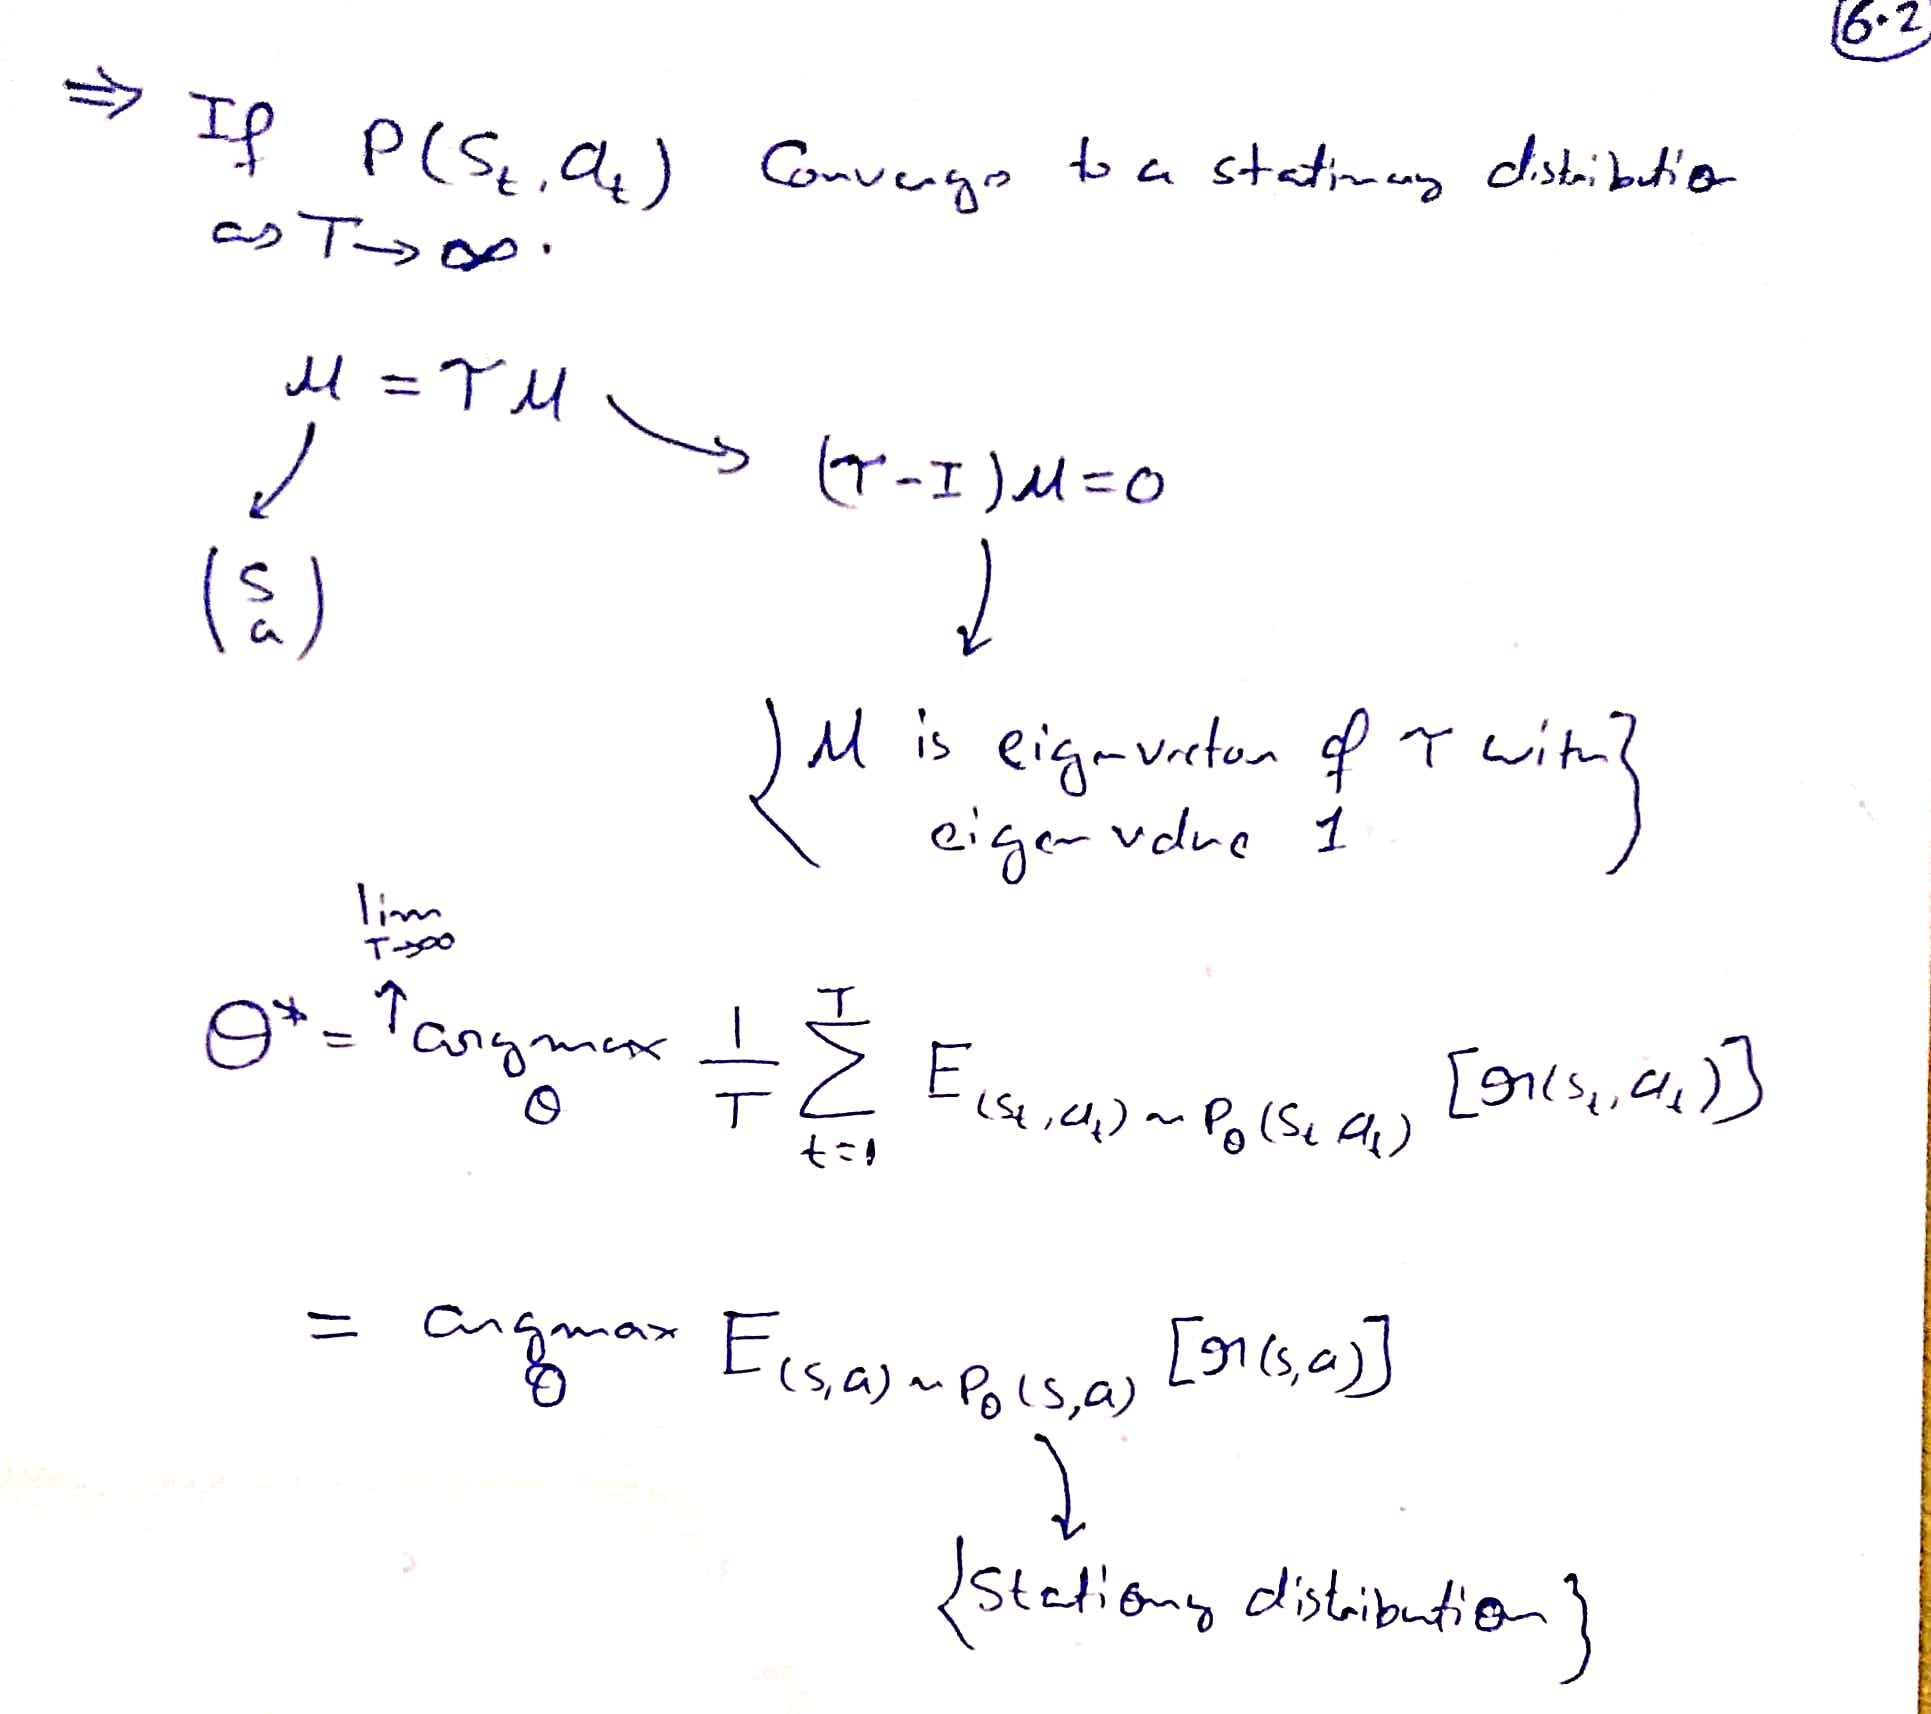 6.2
⇒ If P(s_t, a_t) Converges to a stationary distribution
as T → ∞.
μ = τμ
(τ - I) μ = 0
(s a)
{ μ is eigenvector of τ with
eigen value 1 }
lim T→∞
θ* = ↑ argmax_θ 1/T Σ_{t=1}^{T} E_{(s_t, a_t) ~ P_θ(s_t a_t)} [r(s_t, a_t)]
= argmax_θ E_{(s,a) ~ P_θ(s,a)} [r(s,a)]
{ Stationary distribution }